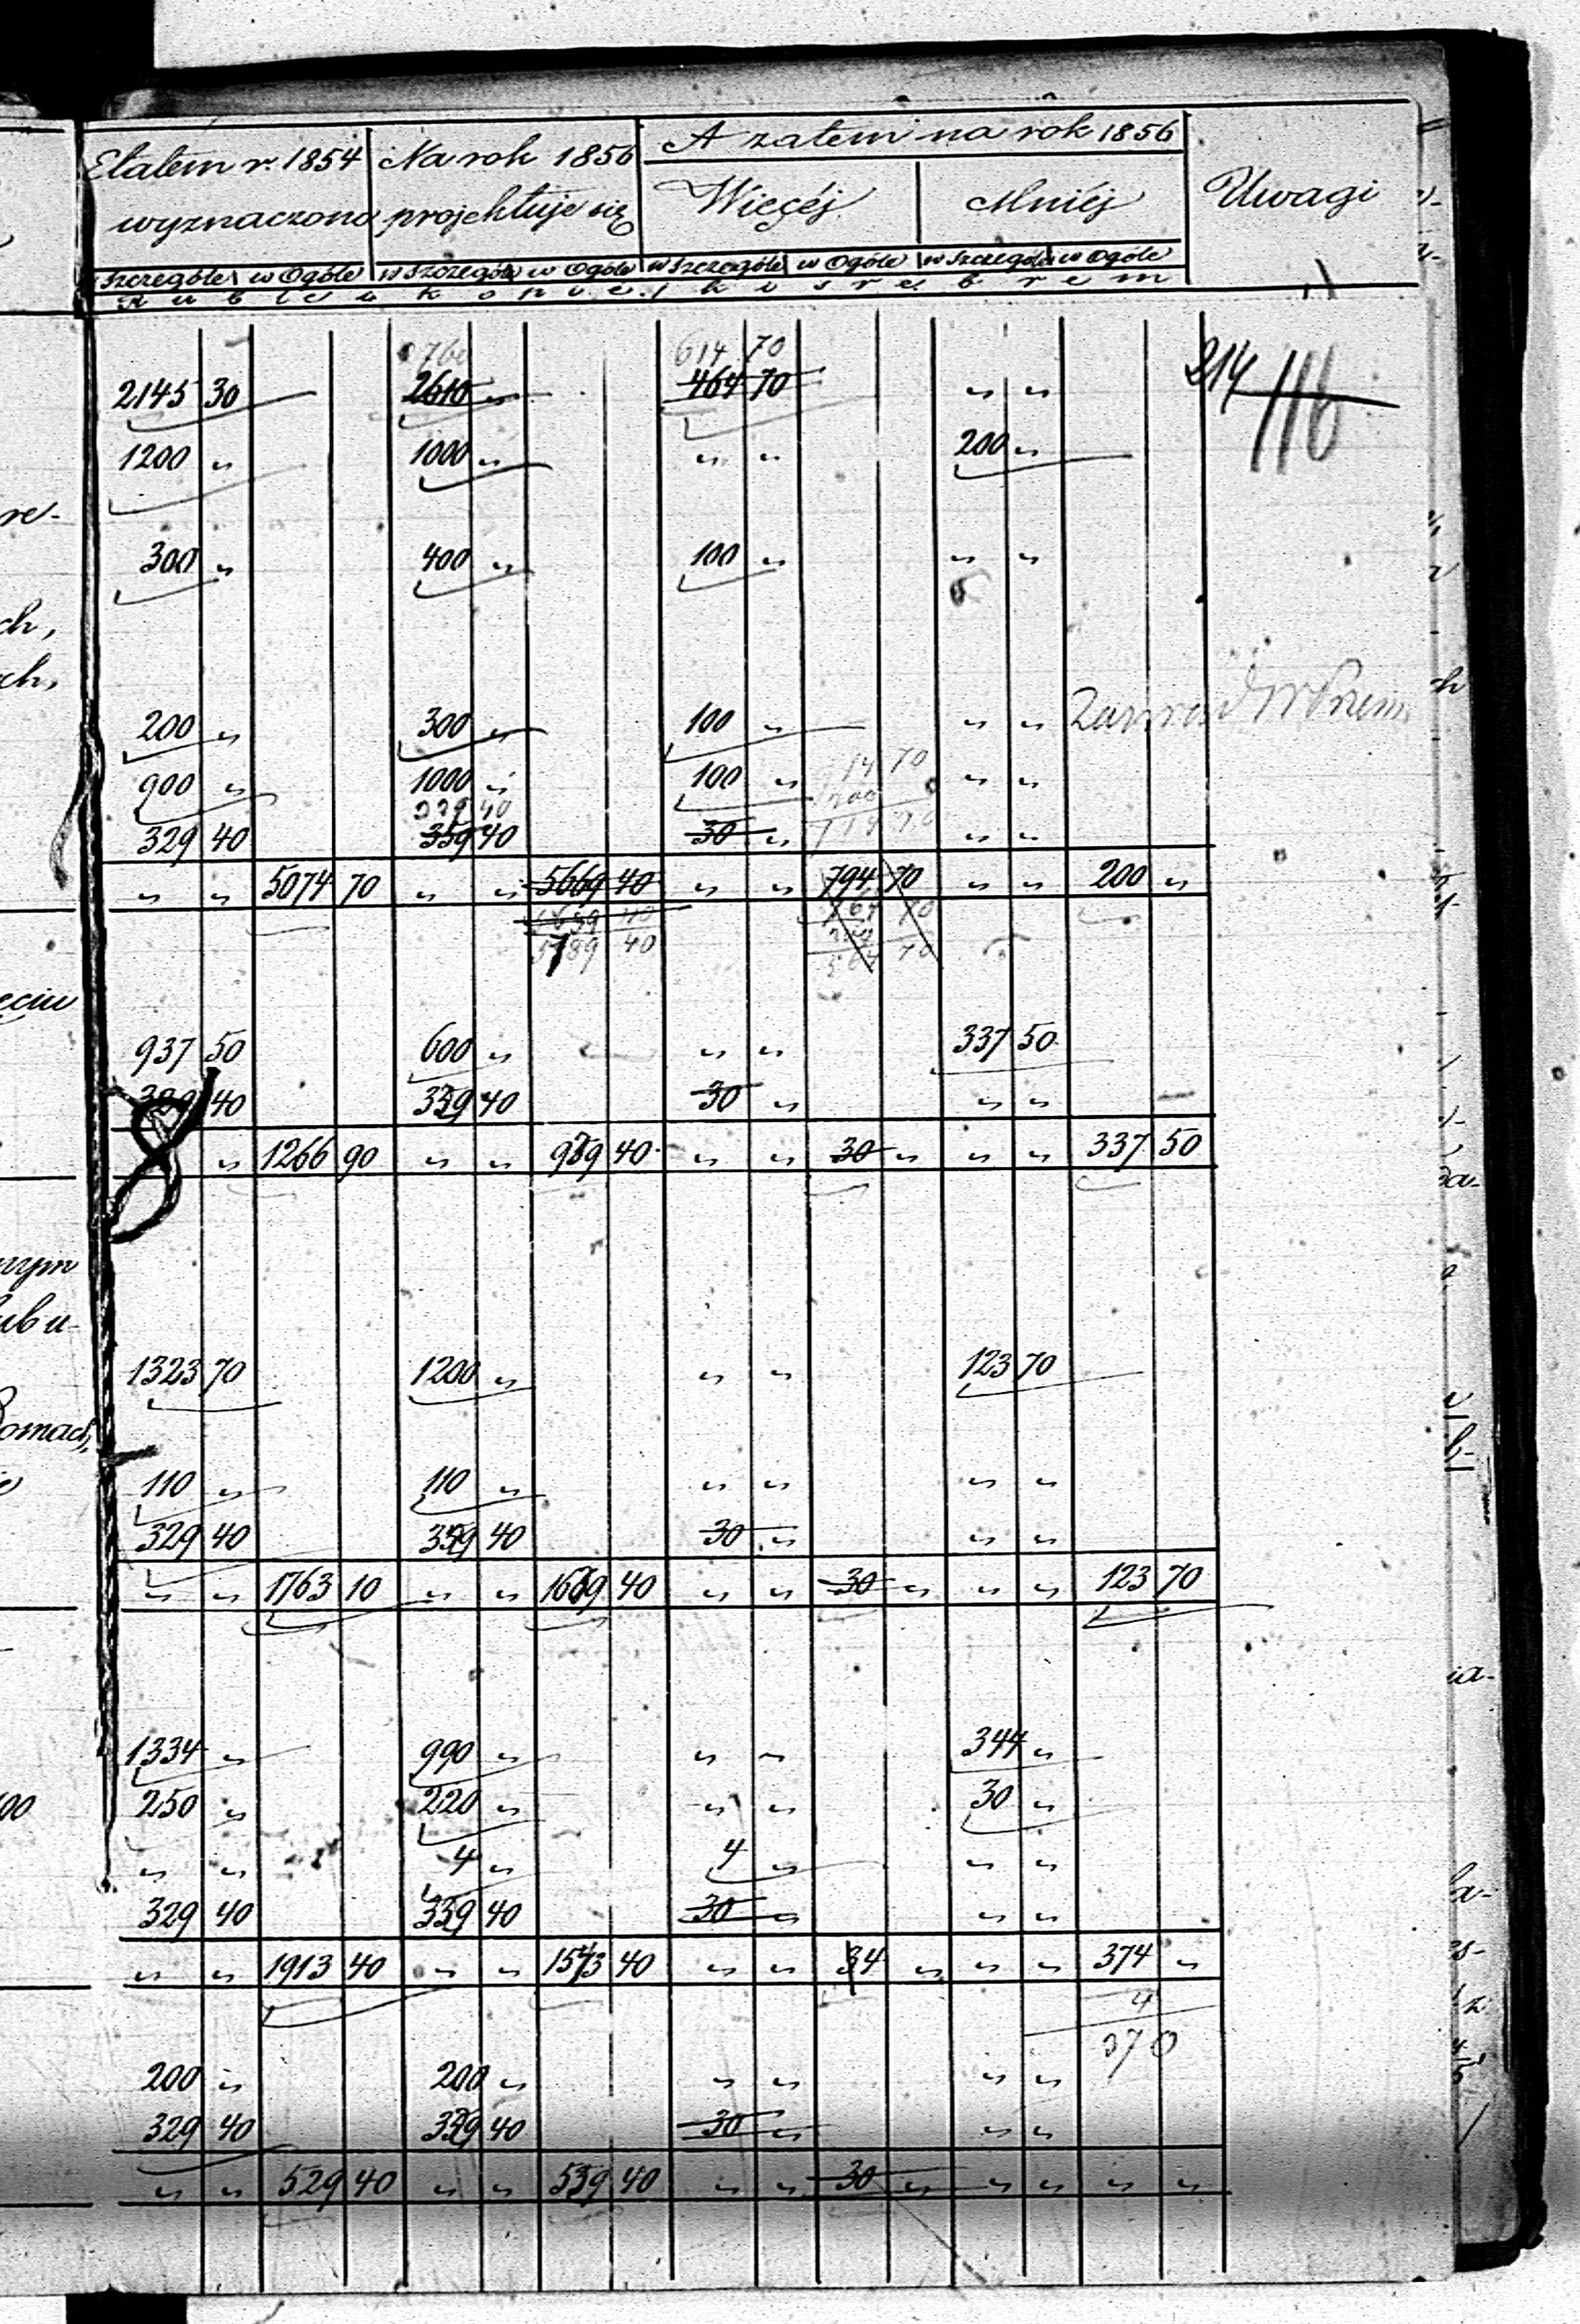 Etatem r. 1854 Na rok 1856 A zatem na rok 1856
wyznaczono projektuje się Więcéj Mniéj Uwagi
w Szczególe w Ogóle w Szczególe w Ogóle w Szczególe w Ogóle w Szczególe w Ogóle
Ruble i kopiejki srebrem
614 70
2145 30 2610 " 464 70 " " 214
116
1200 " 1000 " " " 200 "
re-
300 " 400 " 100 " " "
ch,
ch,
200 " 300 " 100 " " "
14 70
900 " 1000 " 100 " " "
329 40
329 40 359 40 30 " " "
" " 5074 70 " " 5669 40 " " 794 70 " " 200 "
5639 40
5789 40
ęciu
937 50 600 " " " 337 50
329 40 339 40 30 " " "
" 1266 90 " " 989 40 " " 30 " " " 337 50
nym
lub u-
1323 70 1200 " " " 123 70
Domach,
110 " 110 " " " " "
329 40 359 40 30 " " "
" " 1763 10 " " 1669 40 " " 30 " " " 123 70
1334 " 990 " " " 344 "
00 250 " 220 " " " 30 "
" " 4 " 4 " " "
329 40 359 40 30 " " "
" " 1913 40 " " 1573 40 " " 34 " " " 374 "
4
370
200 " 200 " " " " "
329 40 359 40 30 " " "
" " 529 40 " " 559 40 " " 30 " " " " "